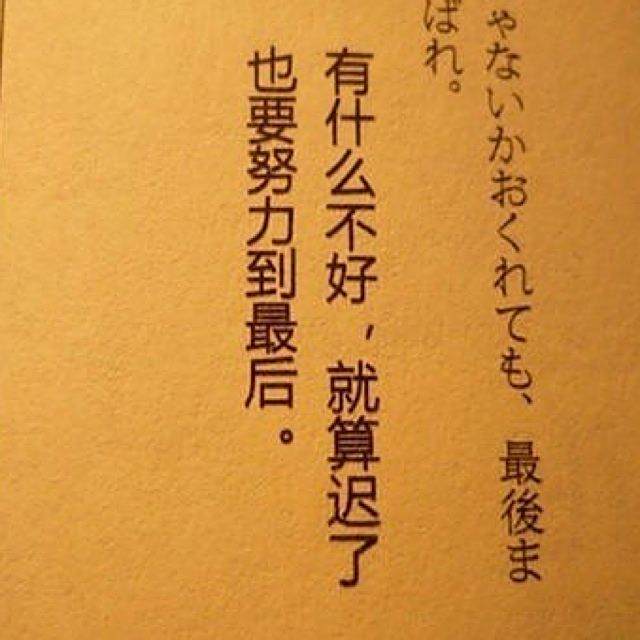 ゃないかおくれても、最後ま
ばれ。
有什么不好，就算迟了
也要努力到最后。